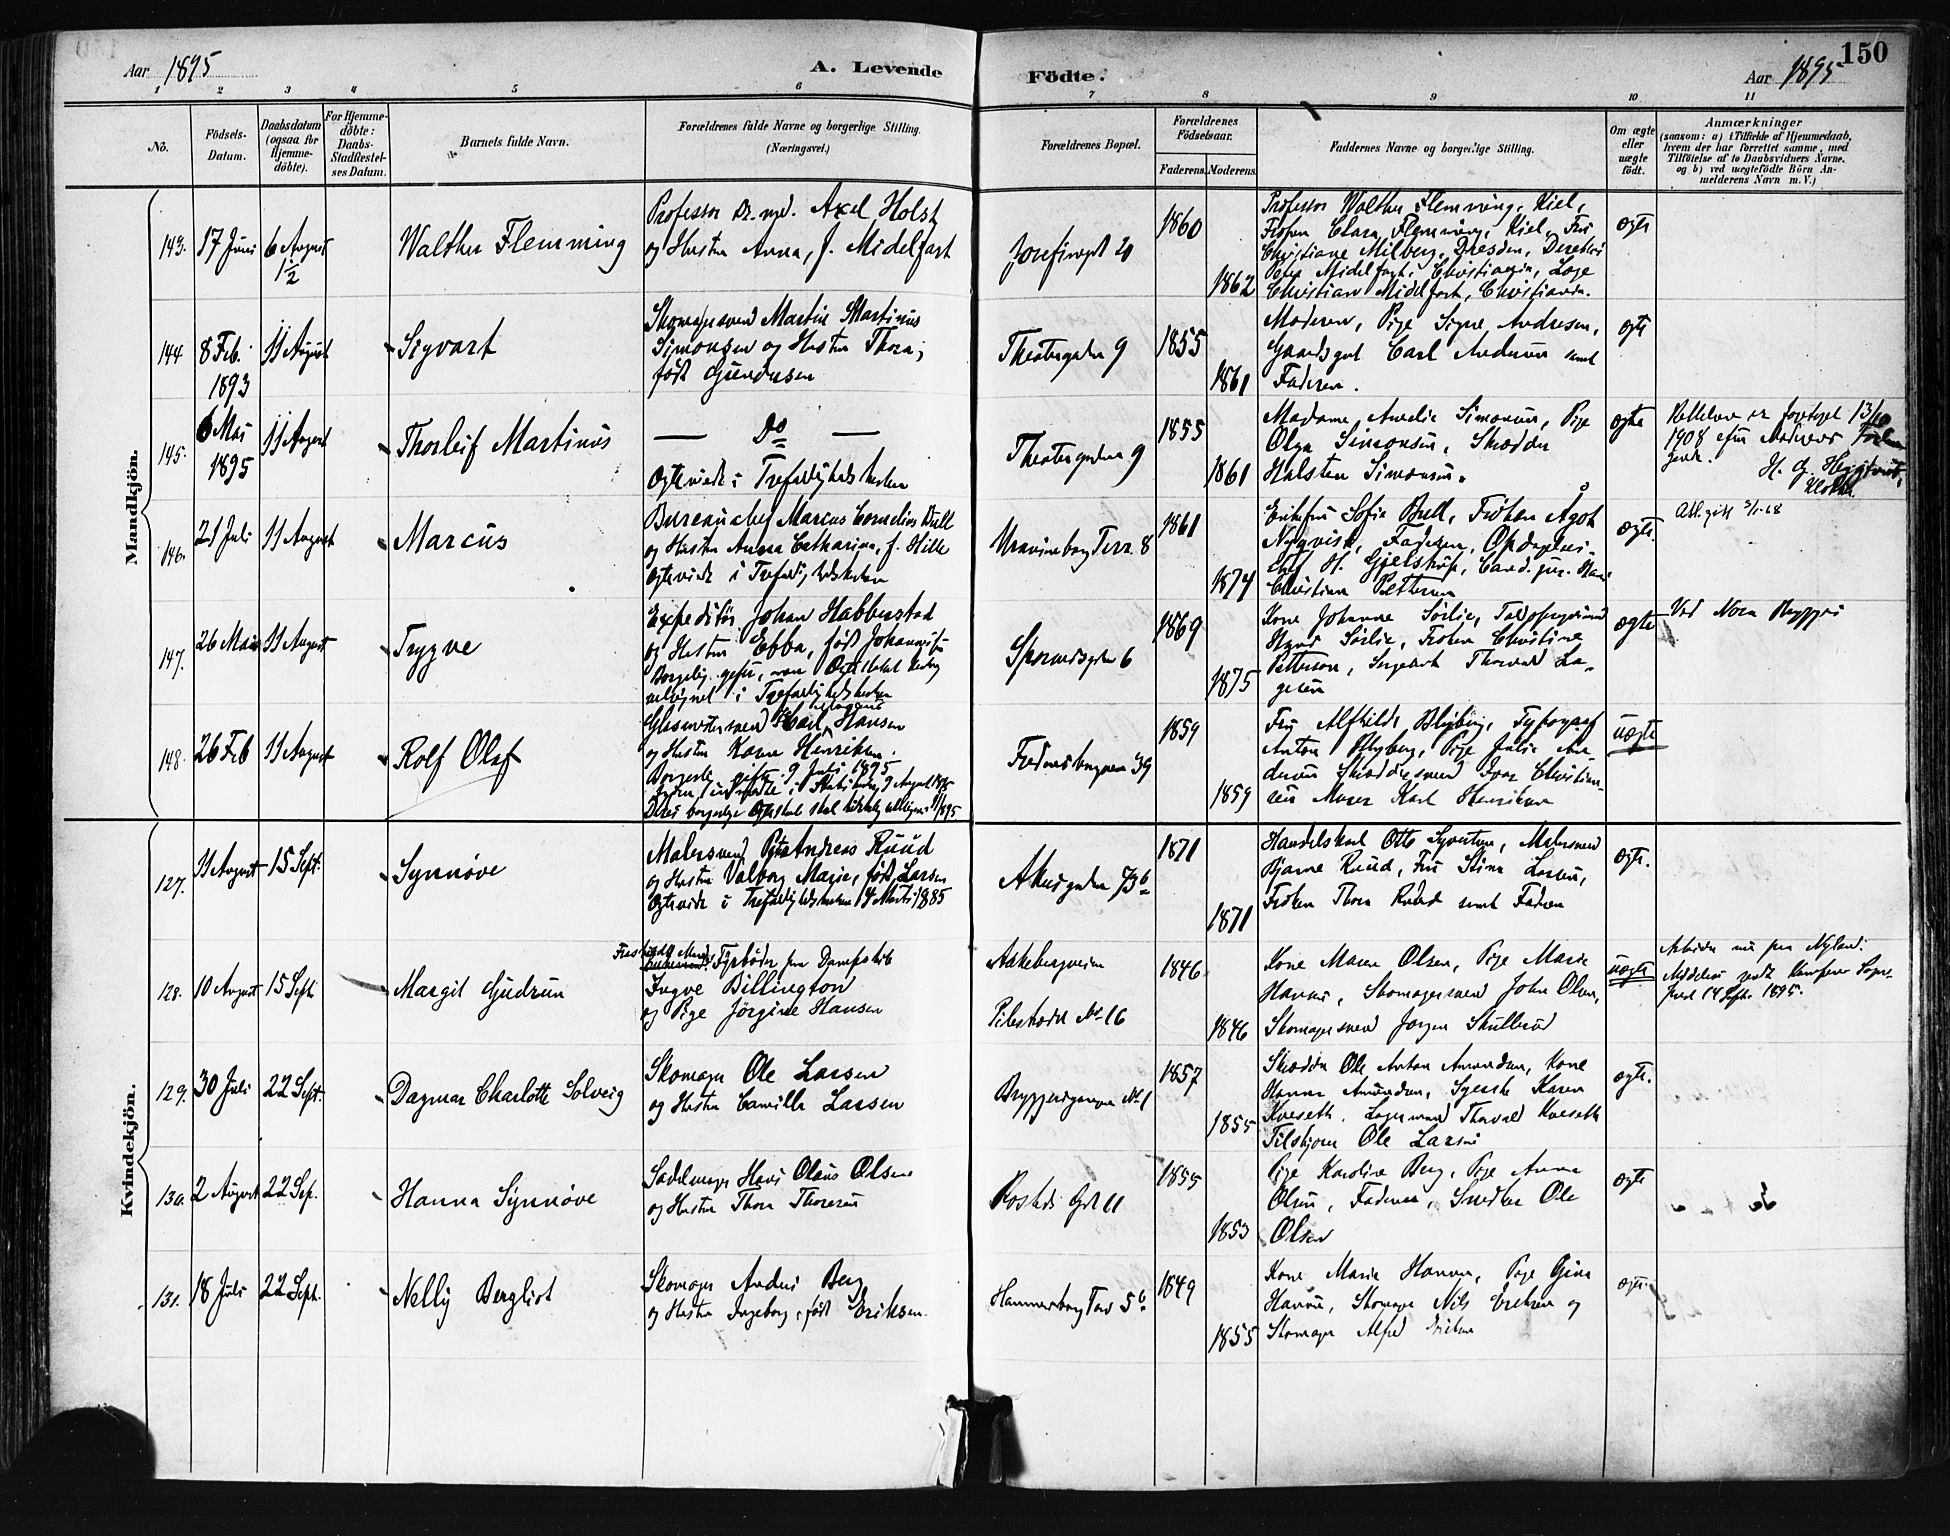 150
Aar 1895
A. Levende Födte.
Aar 1895
1 2 3 4 5 6 7 8 9 10 11
No.
Födsels-Datum.
Daabsdatum (ogsaa for Hjemme-döbte).
For Hjemme-döbte: Daabs-Stadfæstel-ses Datum.
Barnets fulde Navn.
Forældrenes fulde Navne og borgerlige Stilling. (Næringsvei.)
Forældrenes Bopæl.
Forældrenes Födselsaar.
Faderens. Moderens.
Faddernes Navne og borgerlige Stilling.
Om ægte eller uægte födt.
Anmærkninger
(saasom: a) i Tilfælde af Hjemmedaab, hvem der har forrettet samme, med Tilföielse af to Daabsvidners Navne, og b) ved uægtefödte Börn An-melderens Navn m. V.)
Mandkjön.
143. 17 Juni 6 August 1½
Walther Flemming
Professor Dr. med. Axel Holst
og Hustru Anna, f. Midelfart
Josefinegd 20
1860
1862
Professor Walther Flemming, Kiel,
Frøken Clara Flemming, Kiel, Fru
Christiane Milberg, Dresden, Direktør
Peter Midelfart, Christiania, Læge
Christian Midelfart, Christiania.
ægte
144 8 Feb. 1893 11 August
Sigvart
Skomagersvend Martin Martinus
Simonsen og Hustru Thora,
født Gundersen
Theatergaden 9
1855
1861
Moderen, Pige Signe Andresen,
Gaardsgut Carl Andersen samt
Faderen.
ægte
145. 6 Mai 1895 11 August
Thorleif Martinus
Do
Ægteviede i Trefoldighedskirken
Theatergaden 9
1855
1861
Madame Amelie Simonsen, Pige
Olga Simonsen, Skrædder
Halsten Simonsen.
ægte
Rettelsen er foretaget 13/10
1908 efter Moderens
146. 21 Juli 11 August
Marcus
Bureauchef Marcus Cornelius Bull
og Hustru Anna Catharina, f. Hille
Ægteviede i Trefoldighedskirken
Uranienborg Terr. 8
1861
1874
Enkefru Sofie Bull, Frøken Ågot
Nyqvist, Faderen,
Chef H. Gjelstrup, Cand. jur.
Christian Pettersen
ægte.
147. 26 Mai 11 August
Trygve
Expeditør Johan Habberstad
og Hustru Ebba, født
Borgerlig gifte,
velsignet i Trefoldighedskirken
6
1869
1875
Kone Johanne Sørlie,
Sørlie, Frøken Christine
Petterson, Thorvald La-
gesen
ægte
Ved Nora Bryggeri
148. 26 Feb 11 August
Rolf Olaf
Glasmestersvend Carl Hansen
og Hustru Karen Henriksen.
Borgerlig gifte 9 Juli 1895
Fredensborgveien 39
1859
1859
Fru Alfhild Blyberg, Typograf
Anton Blyberg, Pige Julie An-
dersen Skræddersvend Ivar Christian-
sen Murer Karl Henriksen
uægte
Kvindekjön.
127. 11 August 15 Sept.
Synnøve
Malersvend Andreas Ruud
og Hustru Valborg Marie, født Larsen
Ægteviede i Trefoldighedskirken 14 Marts 1885
Akersgaden 73b
1871
1871
Handelskarl Otto Syvertsen, Malersvend
Bjarne Ruud, Fru Stina Larsen,
Frøken Thora Ruud samt Faderen
ægte.
128. 10 August 15 Sept
Margit Gudrun
Fyrbøder paa Dampskib
Ingve Billington
og Pige Jørgine Hansen
Pilestrædet No 16
1846
1846
Kone Maren Olsen, Pige Marie
Hansen, Skomagersvend John Olsen,
Skomagersvend Jørgen Skullerud
uægte
14 Septr. 1895.
129. 30 Juli 22 Sept.
Dagmar Charlotte Solveig
Skomager Ole Larsen
og Hustru Camilla Larsen
Bryggergangen No 1
1857
1855
Skrædder Ole Anton Amundsen, Kone
Hanna Amundsen, Syerske Karen
Kveseth. Lagermand Thorvald Kveseth
Filskjærer Ole Larsen
ægte.
130. 2 August 22 Sep.
Hanna Synnøve
Sadelmager Hans Olaus Olsen
og Hustru Thora Thoresen
Rosteds Gd 11
1855
1853
Pige Karoline Berg, Pige Anna
Olsen, Faderen, Snedker Ole
Olsen
ægte
131. 18 Juli 22 Sept.
Nelly Bergliot
Skomager Anders Berg
og Hustru Ingeborg, født Eriksen
Hammersborg Torv 5b
1849
1855
Kone Marie Hansen, Pige Gina
Hansen, Skomager Nils Eriksen og
Skomager Alfred
ægte